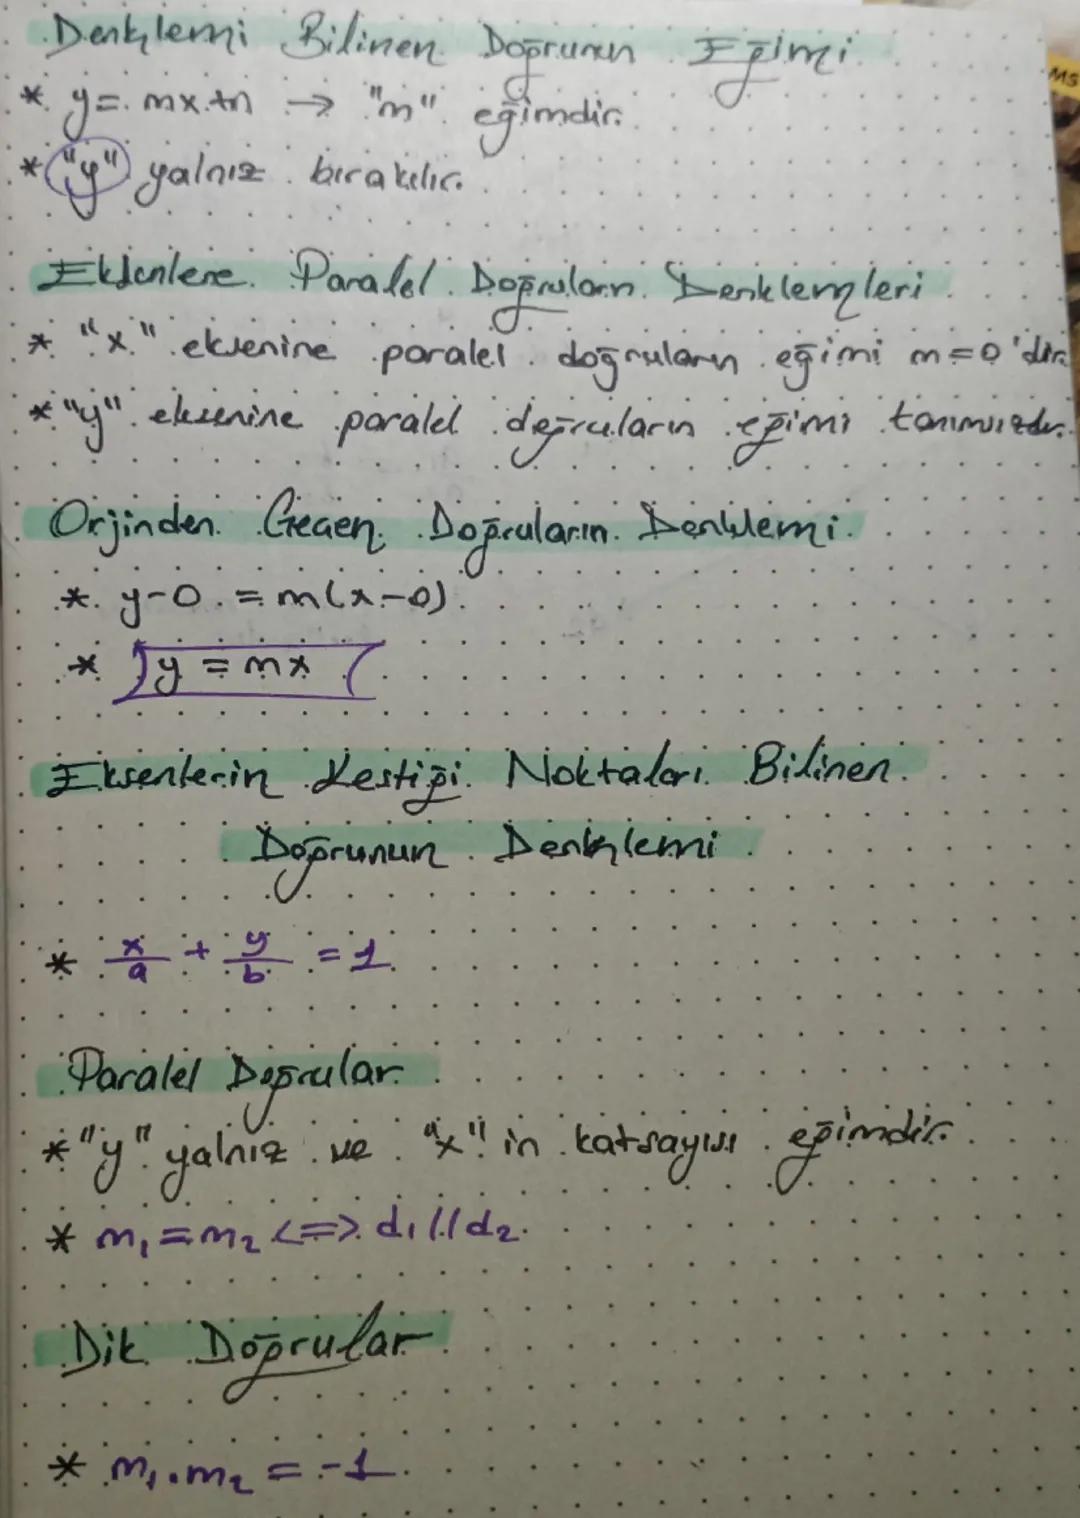 Denklemi Bilinen Doğrunun Eğimi
* y = mx+n → "m" eğimdir.
* "y" yalnız bırakılır.
Eksenlere Paralel Doğruların Denklemleri
* "x" eksenine paralel doğruların eğimi m=0'dır
* "y" eksenine paralel doğruların eğimi tanımsızdır.
Orjinden Geçen Doğruların Denklemi
* y-0 = m(x-0)
* y = mx
Eksenlerin Kestiği Noktaları Bilinen
Doğrunun Denklemi
* x/a + y/b = 1
Paralel Doğrular
* "y" yalnız ve "x" in katsayısı eğimdir.
* m₁ = m₂ <=> d₁ // d₂
Dik Doğrular
* m₁.m₂ = -1
MS